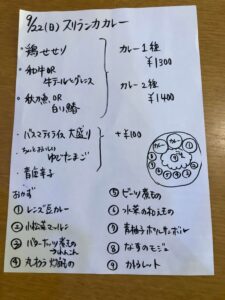 9/22(日) スリランカカレー
・鶏せせり
・和牛 OR
牛テールとレンズ
・秋刀魚 OR
白い鰆
カレー1種
¥1300
カレー2種
¥1400
・バスマティライス 大盛り
・ちょとおいしい
ゆでたまご
・青唐辛子
+¥100
カレー カレー
おかず
① レンズ豆カレー
② 小松菜マッルン
③ バターナッツ煮もの
④
⑤ ビーツ煮もの
⑥ 水菜の和えもの
⑦ 青柚子ポルサンボル
⑧ なすのモージュ
⑨ カトゥレット